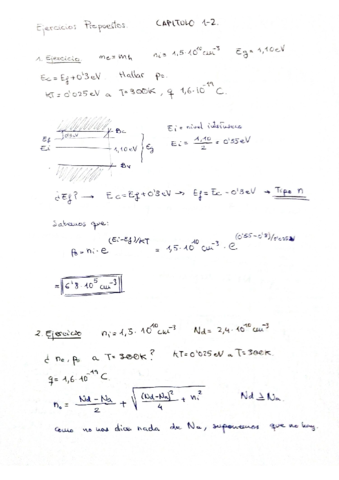 Ejercicios Propuestos. CAPITULO 1-2.
1. Ejercicio me=mh ni=1,5·10^10 cm^-3 Eg=1,10eV
Ec=Ef+0'3eV Hallar po
kT=0'025eV a T=300K, q 1,6·10^-19 C.
Bc
Ei = nivel intrínseco
Ef
Ei
1,10eV
Eg
Ei = 1,10/2 = 0'55eV
Bv
¿Ef? → Ec=Ef+0'3eV → Ef=Ec-0'3eV → Tipo n
Sabemos que:
po = ni·e^(Ei-Ef)/kT = 1,5·10^10 cm^-3·e^(0'55-0'8)/0'025
= 6'8·10^5 cm^-3
2. Ejercicio ni=1,5·10^10 cm^-3 Nd=2,4·10^16 cm^-3
¿no, po a T=300K? kT=0'025eV a T=300K.
q=1,6·10^-19 C.
no = (Nd-Na)/2 + √((Nd-Na)^2/4 + ni^2) Nd Na
como no nos dice nada de Na, suponemos que no hay.